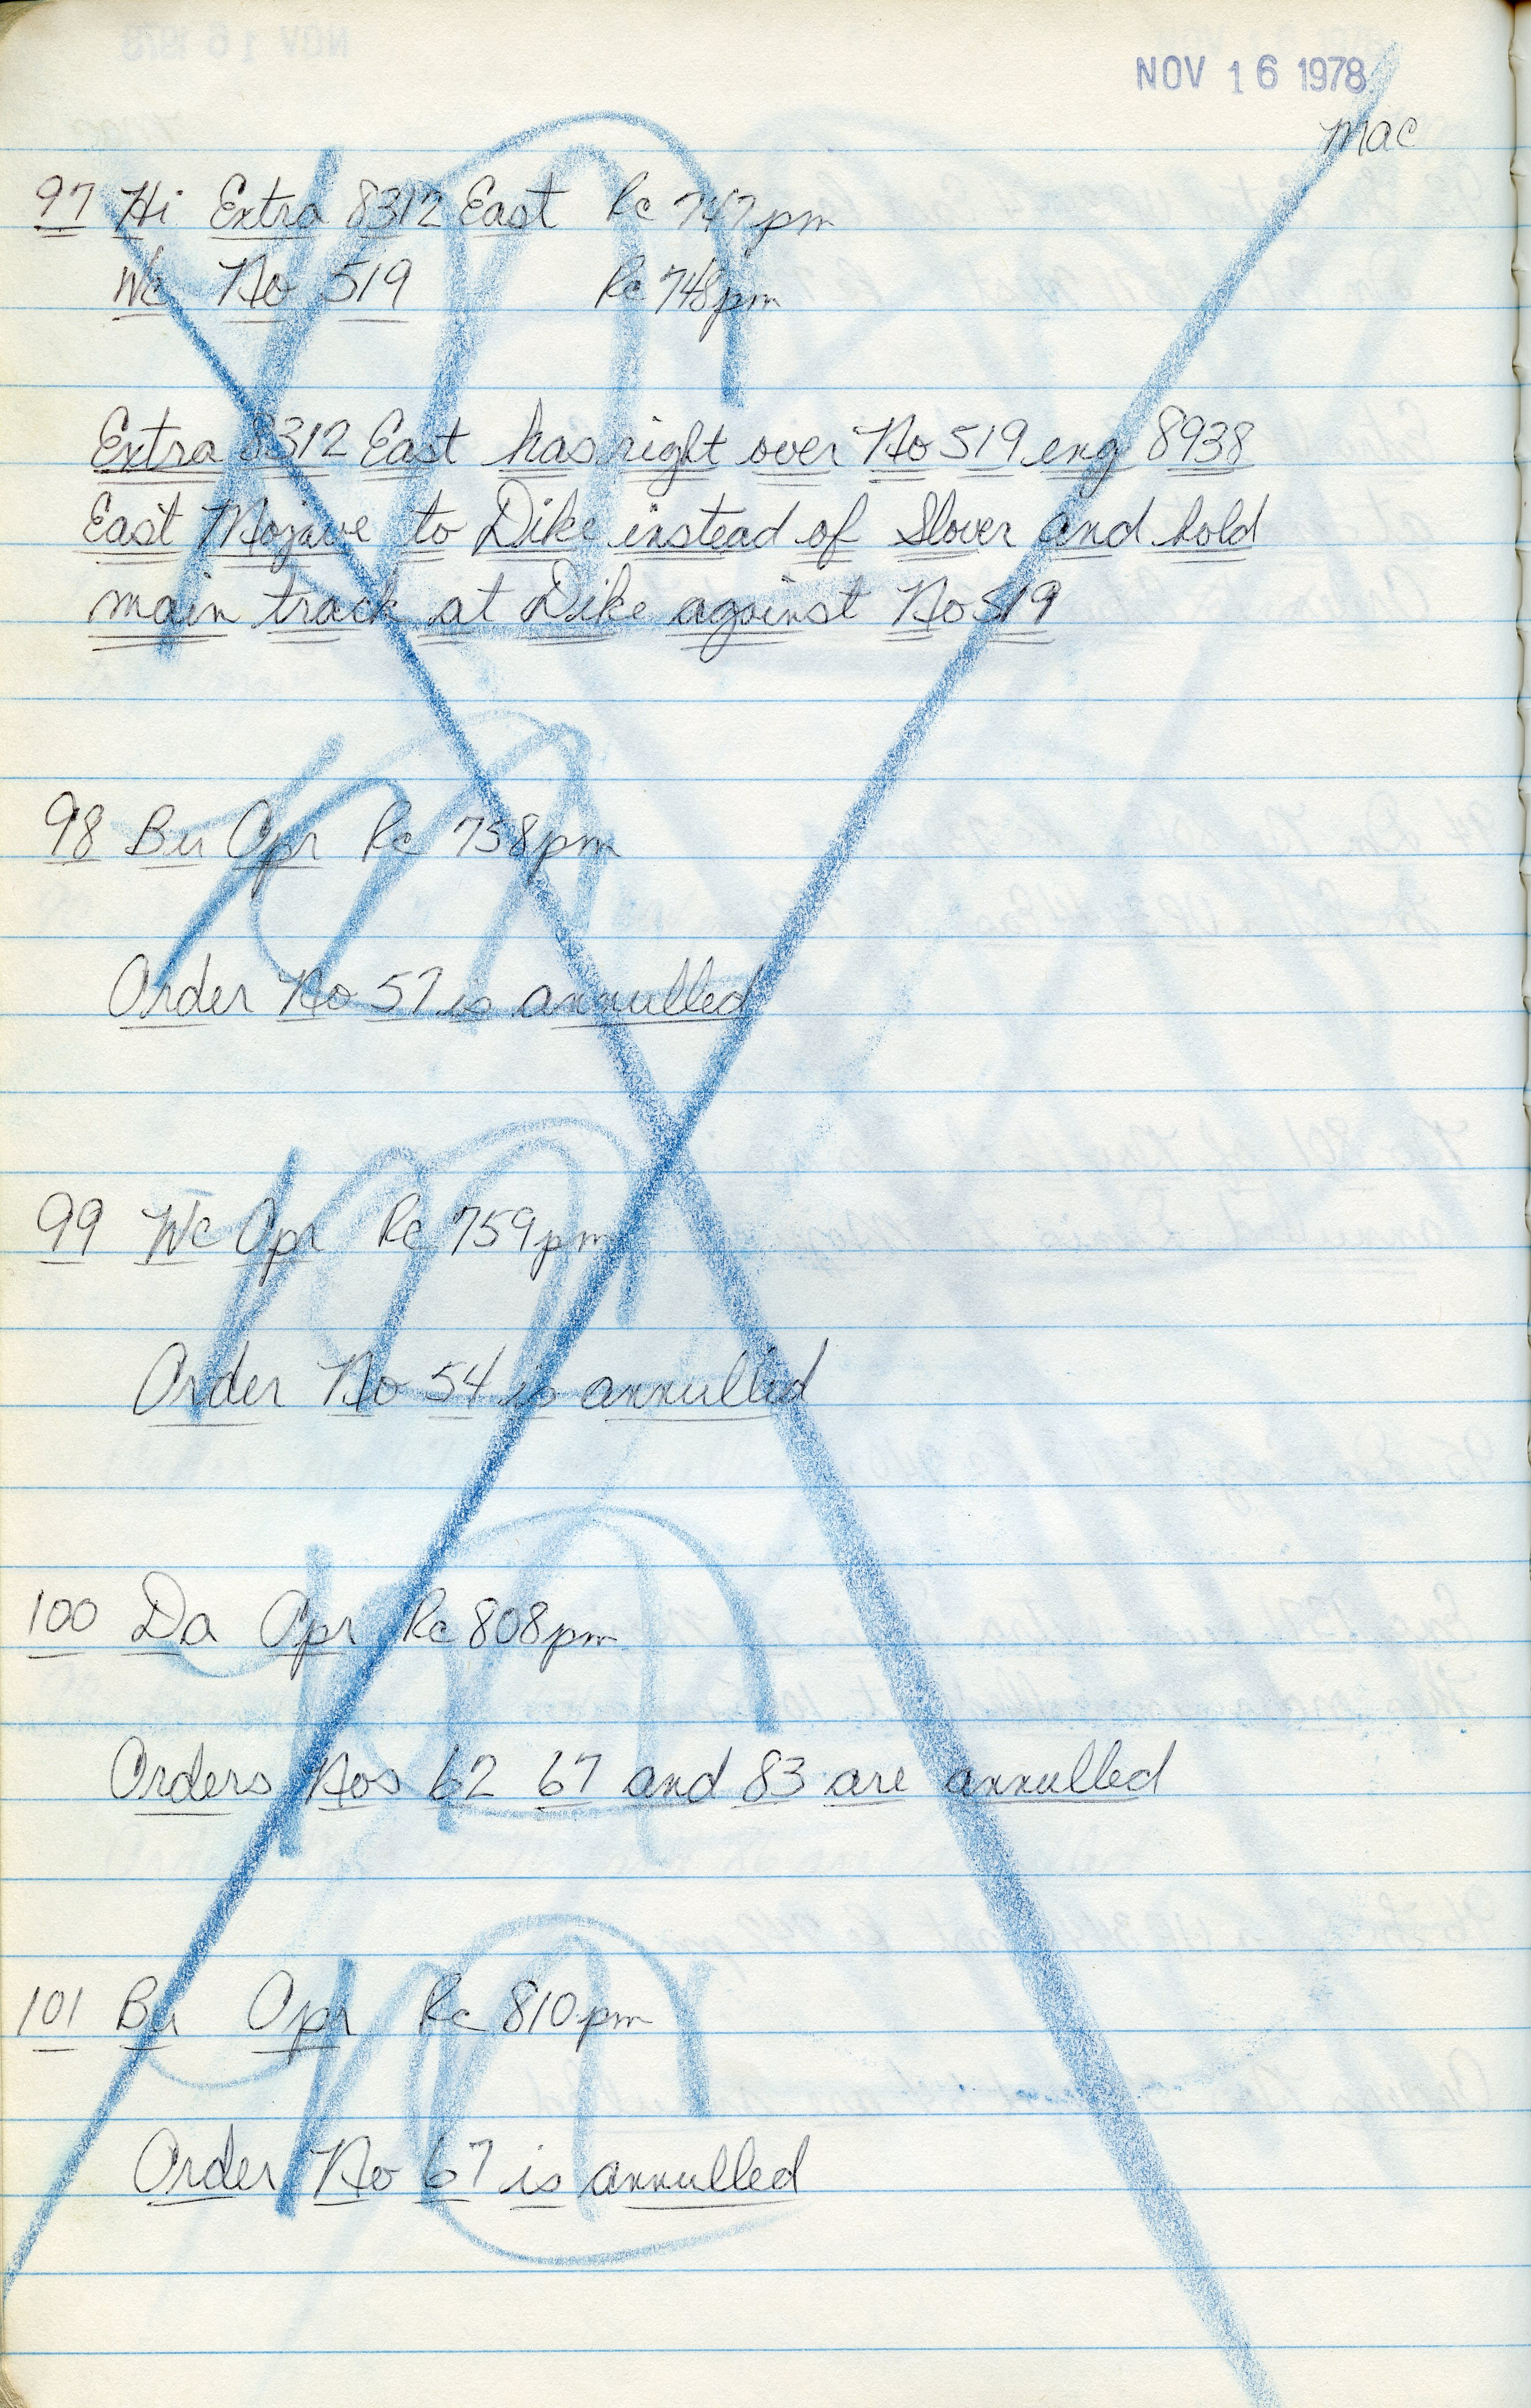 NOV 16 1978
Mac
97 Hi Extra 8312 East Rc 747pm
Wc No 519 Rc 748pm
Extra 8312 East has right over No 519 eng 8938
East Mojave to Dike instead of Slover and hold
main track at Dike against No 519
98 Bu Opr Rc 758pm
Order No 57 is annulled
99 Wc Opr Rc 759pm
Order No 54 is annulled
100 Da Opr Rc 808pm
Orders Nos 62 67 and 83 are annulled
101 Bu Opr Rc 810pm
Order No 67 is annulled